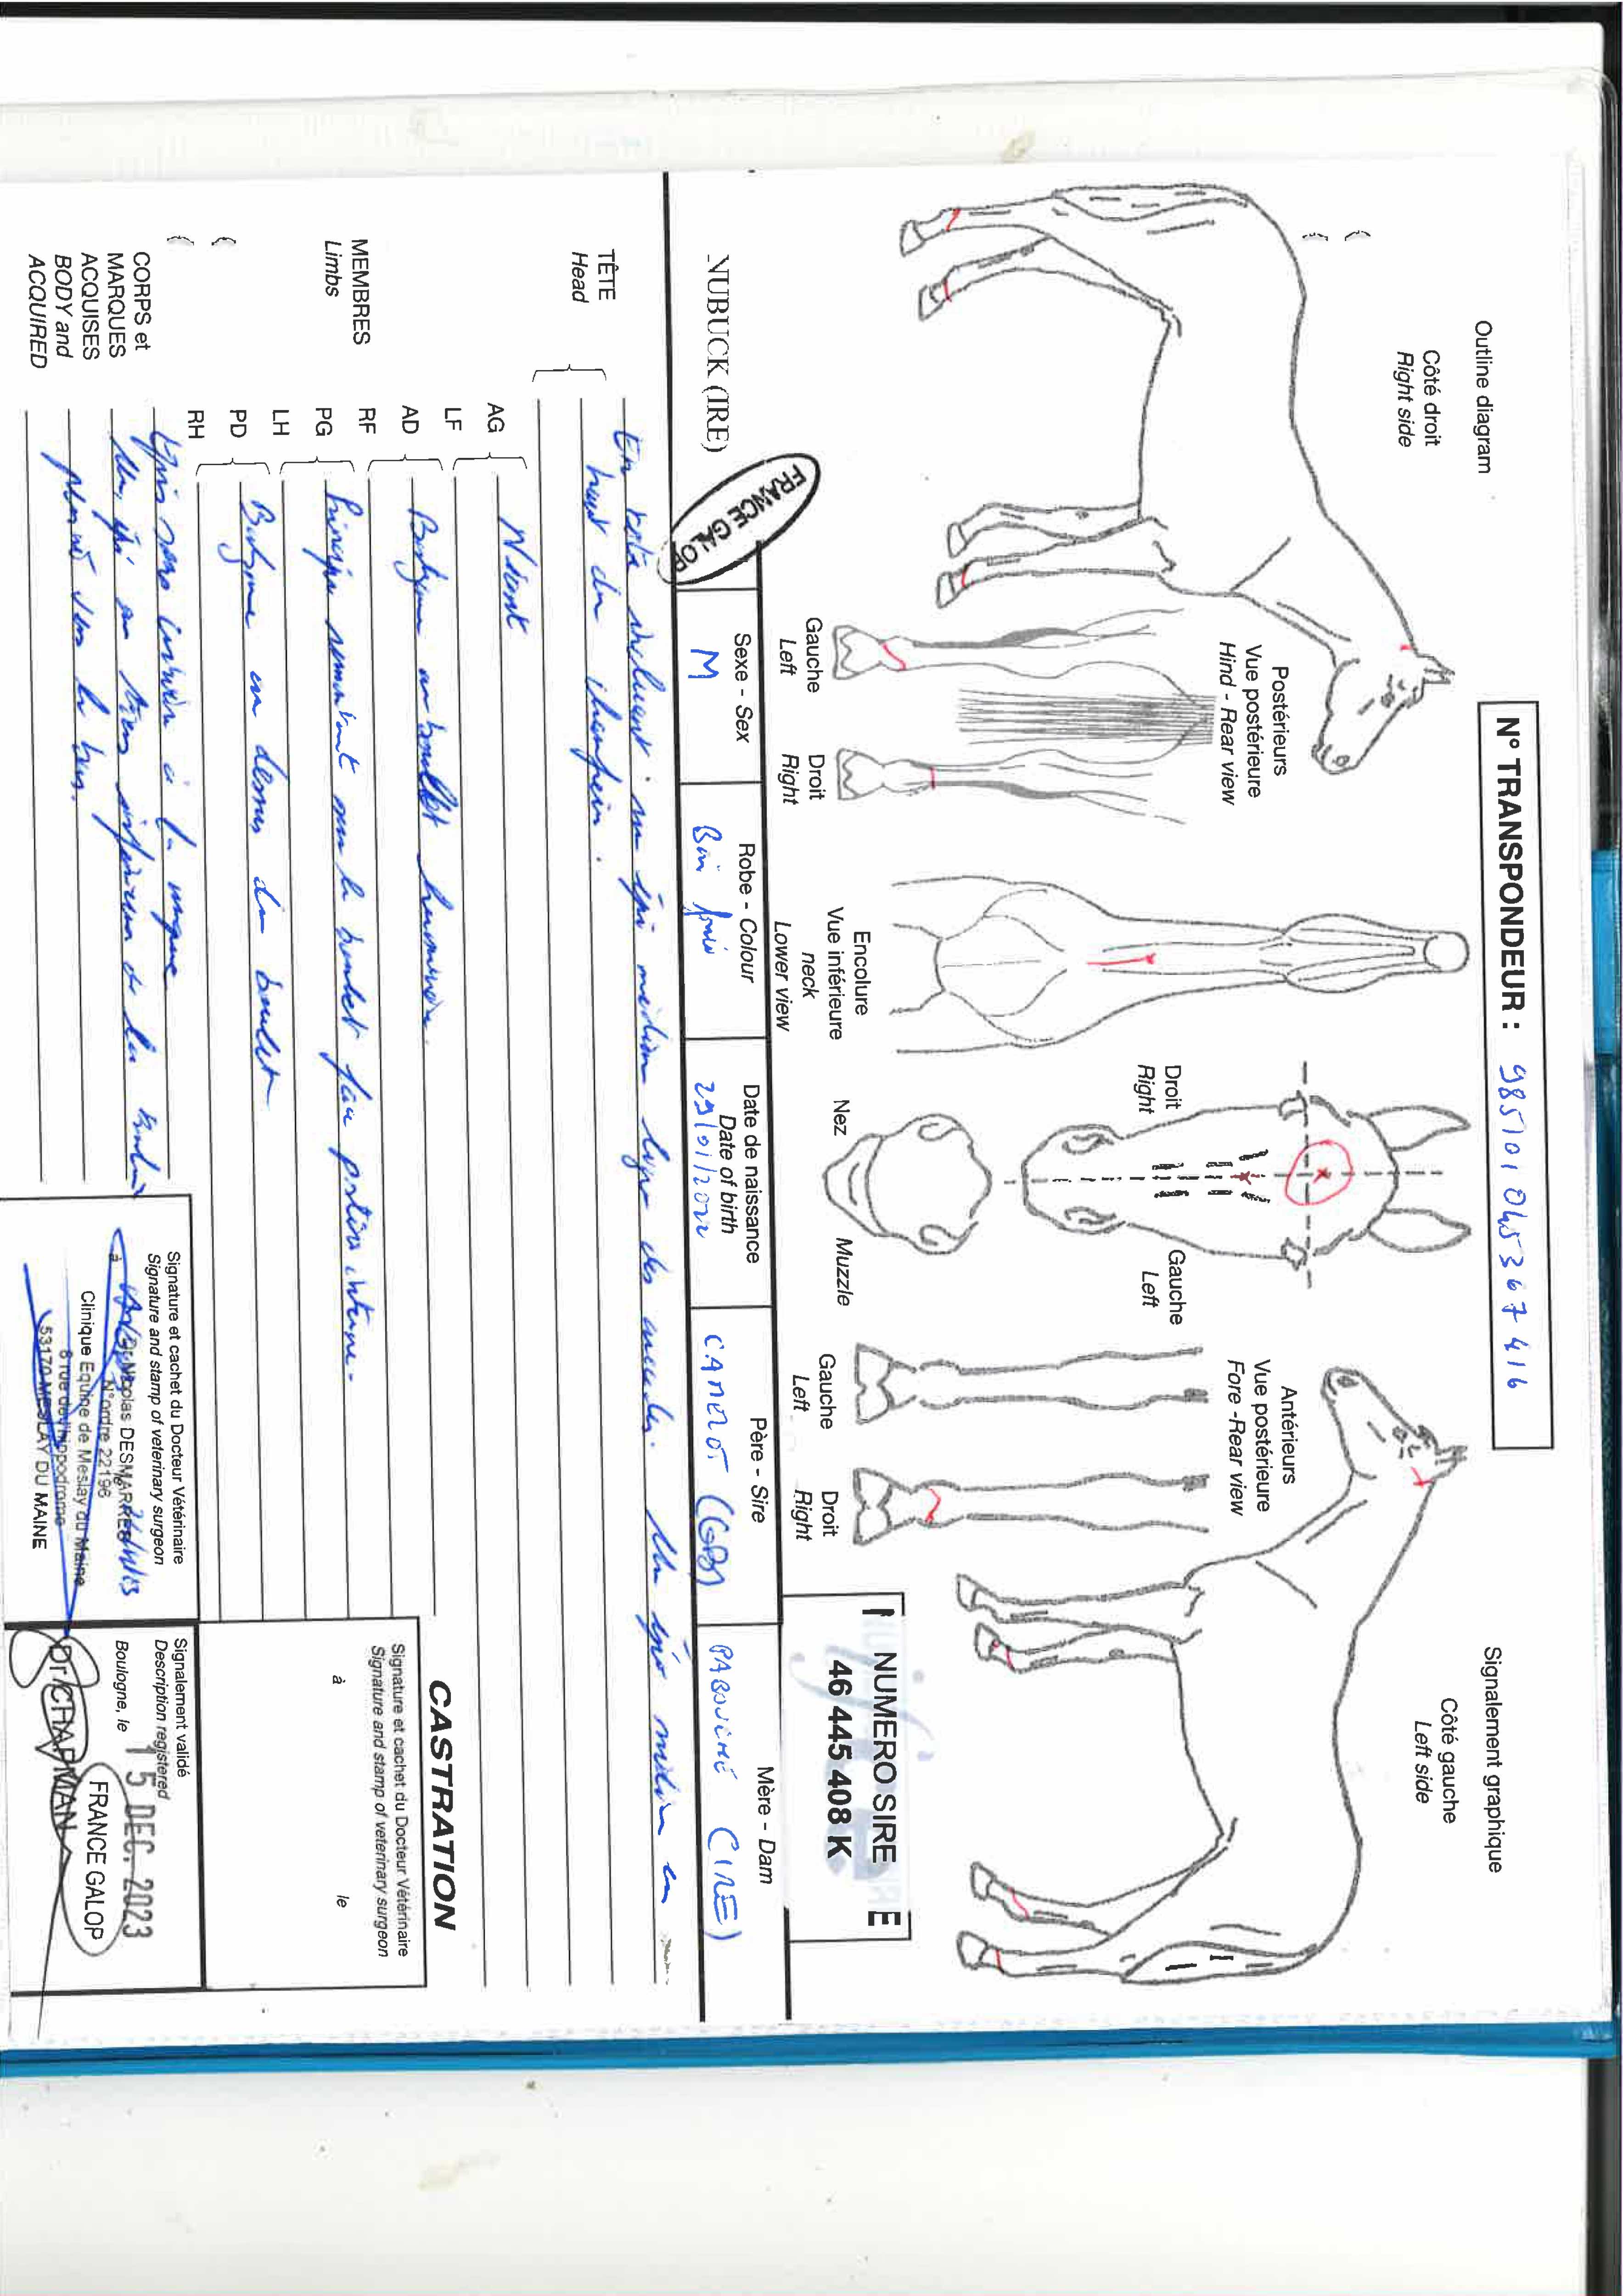 Outline diagram
Côté droit
Right side
N° TRANSPONDEUR : 985101045367416
Signalement graphique
Côté gauche
Left side
Postérieurs
Vue postérieure
Hind - Rear view
Gauche
Left
Droit
Right
Encolure
Vue inférieure
neck
Lower view
Droit
Right
Gauche
Left
Nez
Muzzle
Antérieurs
Vue postérieure
Fore -Rear view
Gauche
Left
Droit
Right
NUMERO SIRE
46 445 408 K
E
NUBUCK (IRE)
FRANCE GALOP
Sexe - Sex
M
Robe - Colour
Bai
Date de naissance
Date of birth
29/01/2022
Père - Sire
CAMELOT (GB)
Mère - Dam
(IRE)
TÊTE
Head
En tête un épi médian ligne des Un épi médian en
haut du chanfrein.
MEMBRES
Limbs
AG
LF
Néant
AD
RF
Balzane au boulet
PG
LH
Principe remontant sur le boulet face interne.
PD
RH
Balzane au dessus du boulet
CORPS et
MARQUES
ACQUISES
BODY and
ACQUIRED
Epis sans crinière à la nuque
Un épi au tiers inférieur de la
vers le bas.
CASTRATION
Signature et cachet du Docteur Vétérinaire
Signature and stamp of veterinary surgeon
à
le
Signature et cachet du Docteur Vétérinaire
Signature and stamp of veterinary surgeon
à
le
Dr Nicolas DESMARRES
N°ordre 22196
Clinique Equine de Meslay du Maine
6 rue de l'hippodrome
53170 MESLAY DU MAINE
Signalement validé
Description registered
Boulogne, le
15 DEC. 2023
FRANCE GALOP
Dr CHAPMAN